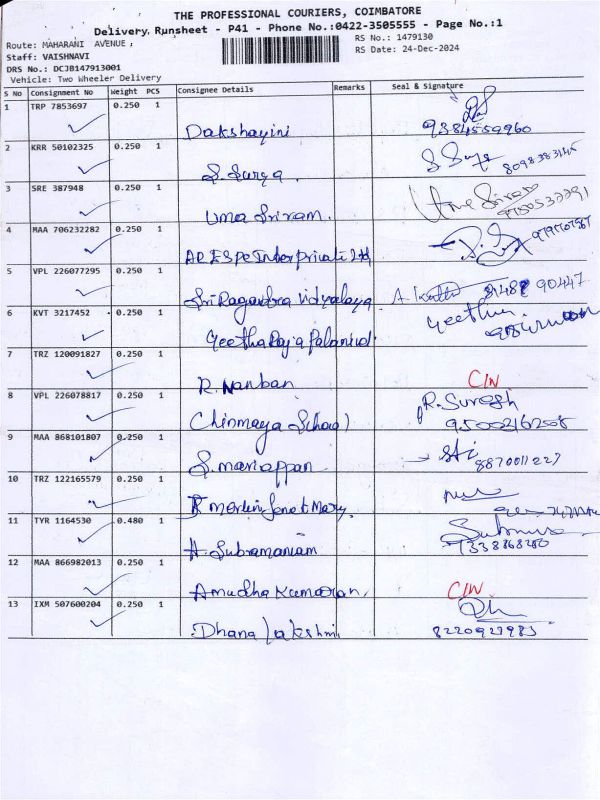 THE PROFESSIONAL COURIERS, COIMBATORE
Delivery Runsheet - P41 - Phone No.:0422-3505555 - Page No.:1
Route: MAHARANI AVENUE , RS No.: 1479130
Staff: VAISHNAVI RS Date: 24-Dec-2024
DRS No.: DCJB147913001
Vehicle: Two Wheeler Delivery
S No Consignment No Weight PCS Consignee Details Remarks Seal & Signature
1 TRP 7853697 0.250 1
Dakshayini 9384559960
2 KRR 50102325 0.250 1
S. Surya. 8098383145
3 SRE 387948 0.250 1
Uma Sriram. Uma Sriram
4 MAA 706232282 0.250 1
Private Ltd
5 VPL 226077295 0.250 1
Sri Ragavendra Vidyalaya 90447
6 KVT 3217452 0.250 1
Geetha Raja Geetha
7 TRZ 120091827 0.250 1
R. Nanban CIN
8 VPL 226078817 0.250 1
Chinmaya School R. Suresh
9 MAA 868101807 0.250 1
S. mariappan 8870011227
10 TRZ 122165579 0.250 1
11 TYR 1164530 0.480 1
A. Subramaniam 7338868280
12 MAA 866982013 0.250 1
Amudha Kumaran, CIN
13 IXM 507600204 0.250 1
Dhana lakshmi 8220923983